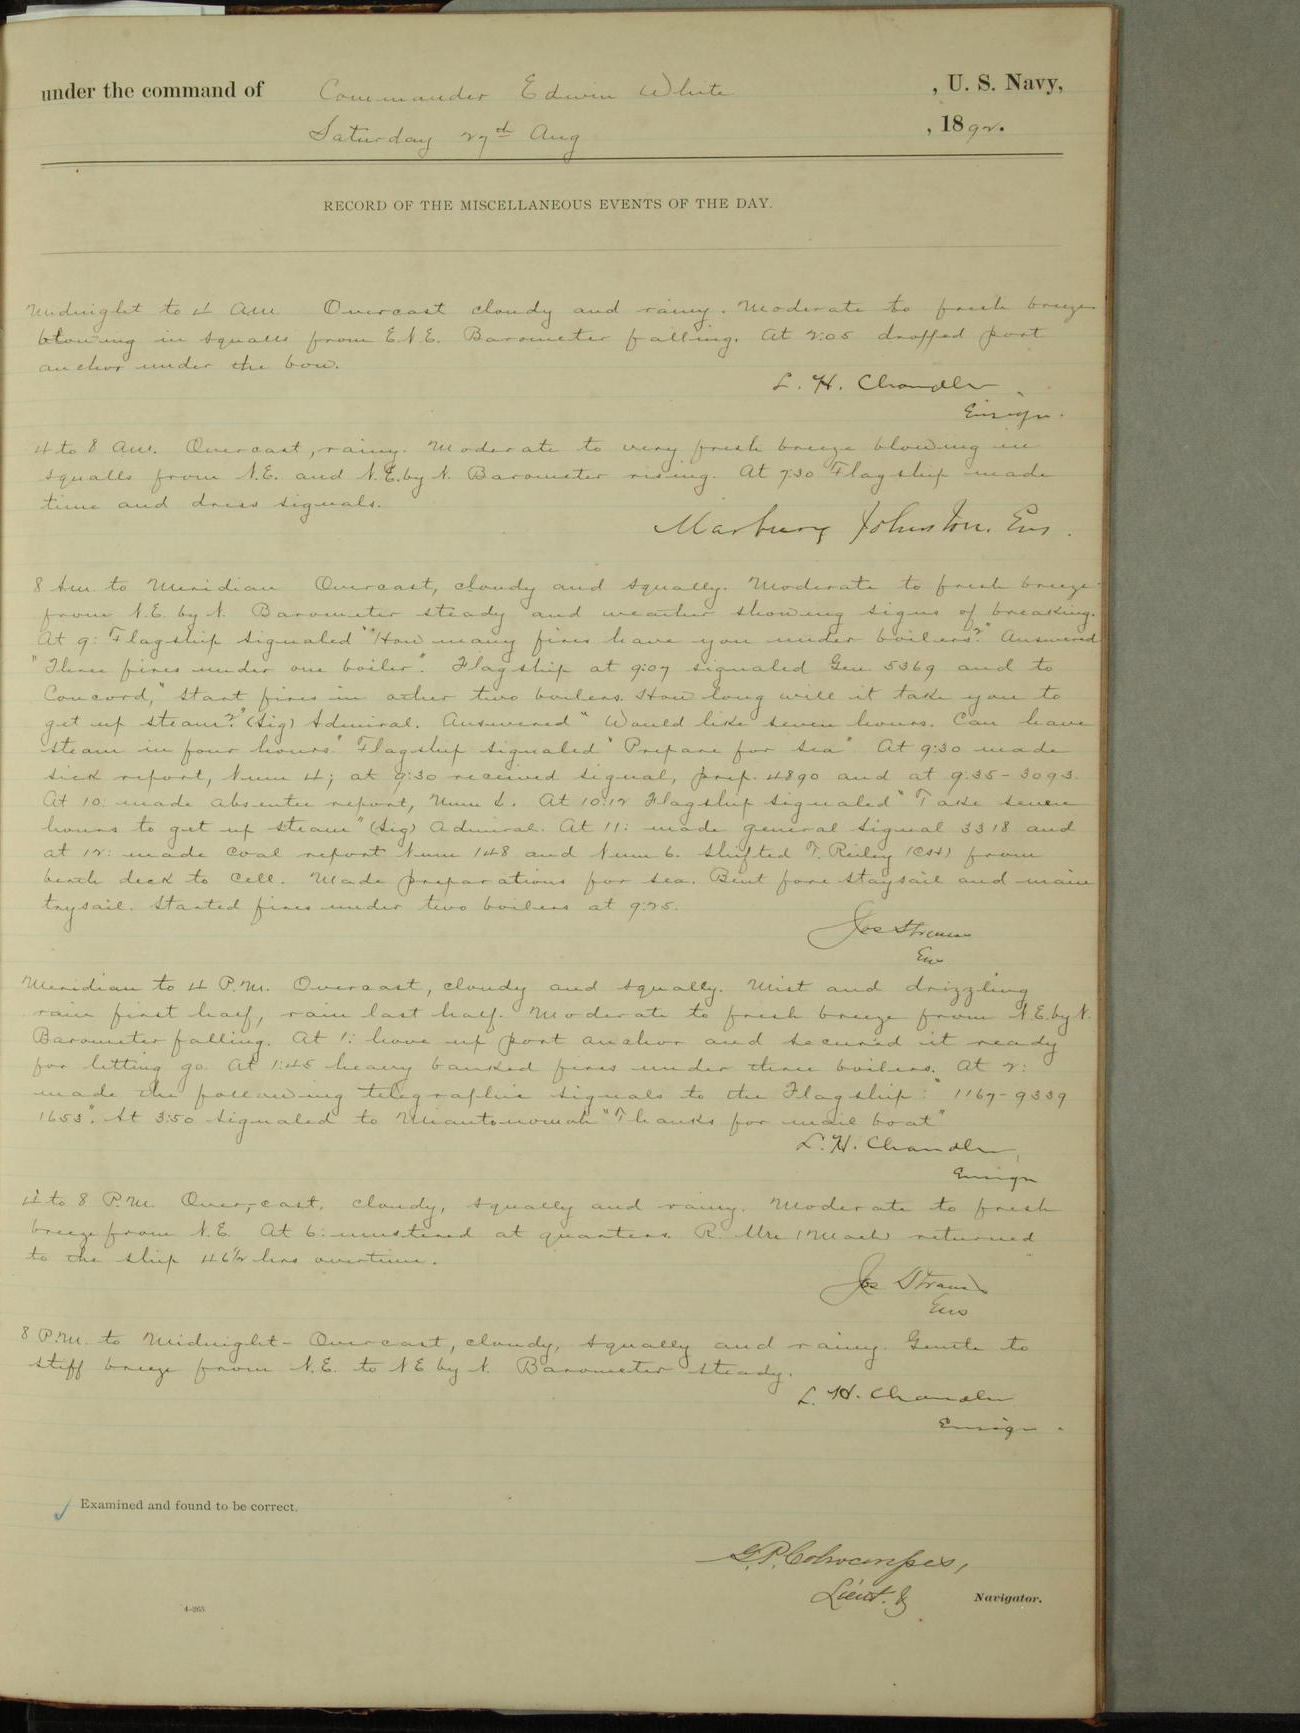 under the command of Commander Edwin White, U. S. Navy,
Saturday 27th Aug, 1892.
RECORD OF THE MISCELLANEOUS EVENTS OF THE DAY.
Midnight to 4 AM. Overcast cloudy and rainy. Moderate to fresh breeze
blowing in squalls from E.N.E. Barometer falling. At 2:05 dropped port
anchor under the bow.
L. H. Chandler
Ensign.
4 to 8 AM. Overcast, rainy. Moderate to very fresh breeze blowing in
squalls from N.E. and N.E. by N. Barometer rising. At 7:30 Flagship made
time and dress signals.
Marbury Johnston. Ens.
8 Am. to Meridian Overcast, cloudy and squally. Moderate to fresh breeze
from N.E. by N. Barometer steady and weather showing signs of breaking.
At 9: Flagship signaled "How many fires have you under boilers?" Answered
"Three fires under one boiler". Flagship at 9:07 signaled Gen. 5369 and to
Concord, "Start fires in other two boilers. How long will it take you to
get up steam?" (Sig) Admiral. Answered "Would like seven hours. Can have
steam in four hours." Flagship signaled "Prepare for sea" At 9:30 made
sick report, Num 4; at 9:30 received signal, prep. 4890 and at 9:35-3093.
At 10: made absentee report, Num 2. At 10:12 Flagship signaled "Take seven
hours to get up steam" (Sig) Admiral. At 11: made general signal 3318 and
at 12: made coal report Num 148 and Num 6. Shifted T. Reiley from
berth deck to cell. Made preparations for sea. Bent fore staysail and main
trysail. Started fires under two boilers at 9:25.
Jos Strauss
Ens
Meridian to 4 P.M. Overcast, cloudy and squally. Mist and drizzling
rain first half, rain last half. Moderate to fresh breeze from N.E. by N.
Barometer falling. At 1: hove up port anchor and secured it ready
for letting go. At 1:45 heavy banked fires under three boilers. At 2:
made the following telegraphic signals to the Flagship: "1167-9339
1653". At 3:50 signaled to Miantonomoh "Thanks for mail boat"
L. H. Chandler,
Ensign
4 to 8 P.M. Over-cast, cloudy, squally and rainy. Moderate to fresh
breeze from N.E. At 6: mustered at quarters. R. Ure (Mach) returned
to the ship 46½ hrs overtime.
Jos Strauss
Ens
8 P.M. to Midnight - Overcast, cloudy, squally and rainy. Gentle to
stiff breeze from N.E. to NE by N. Barometer steady.
L. H. Chandler
Ensign.
Examined and found to be correct.
G. P. Colvocoresses,
Lieut. & Navigator.
4-265